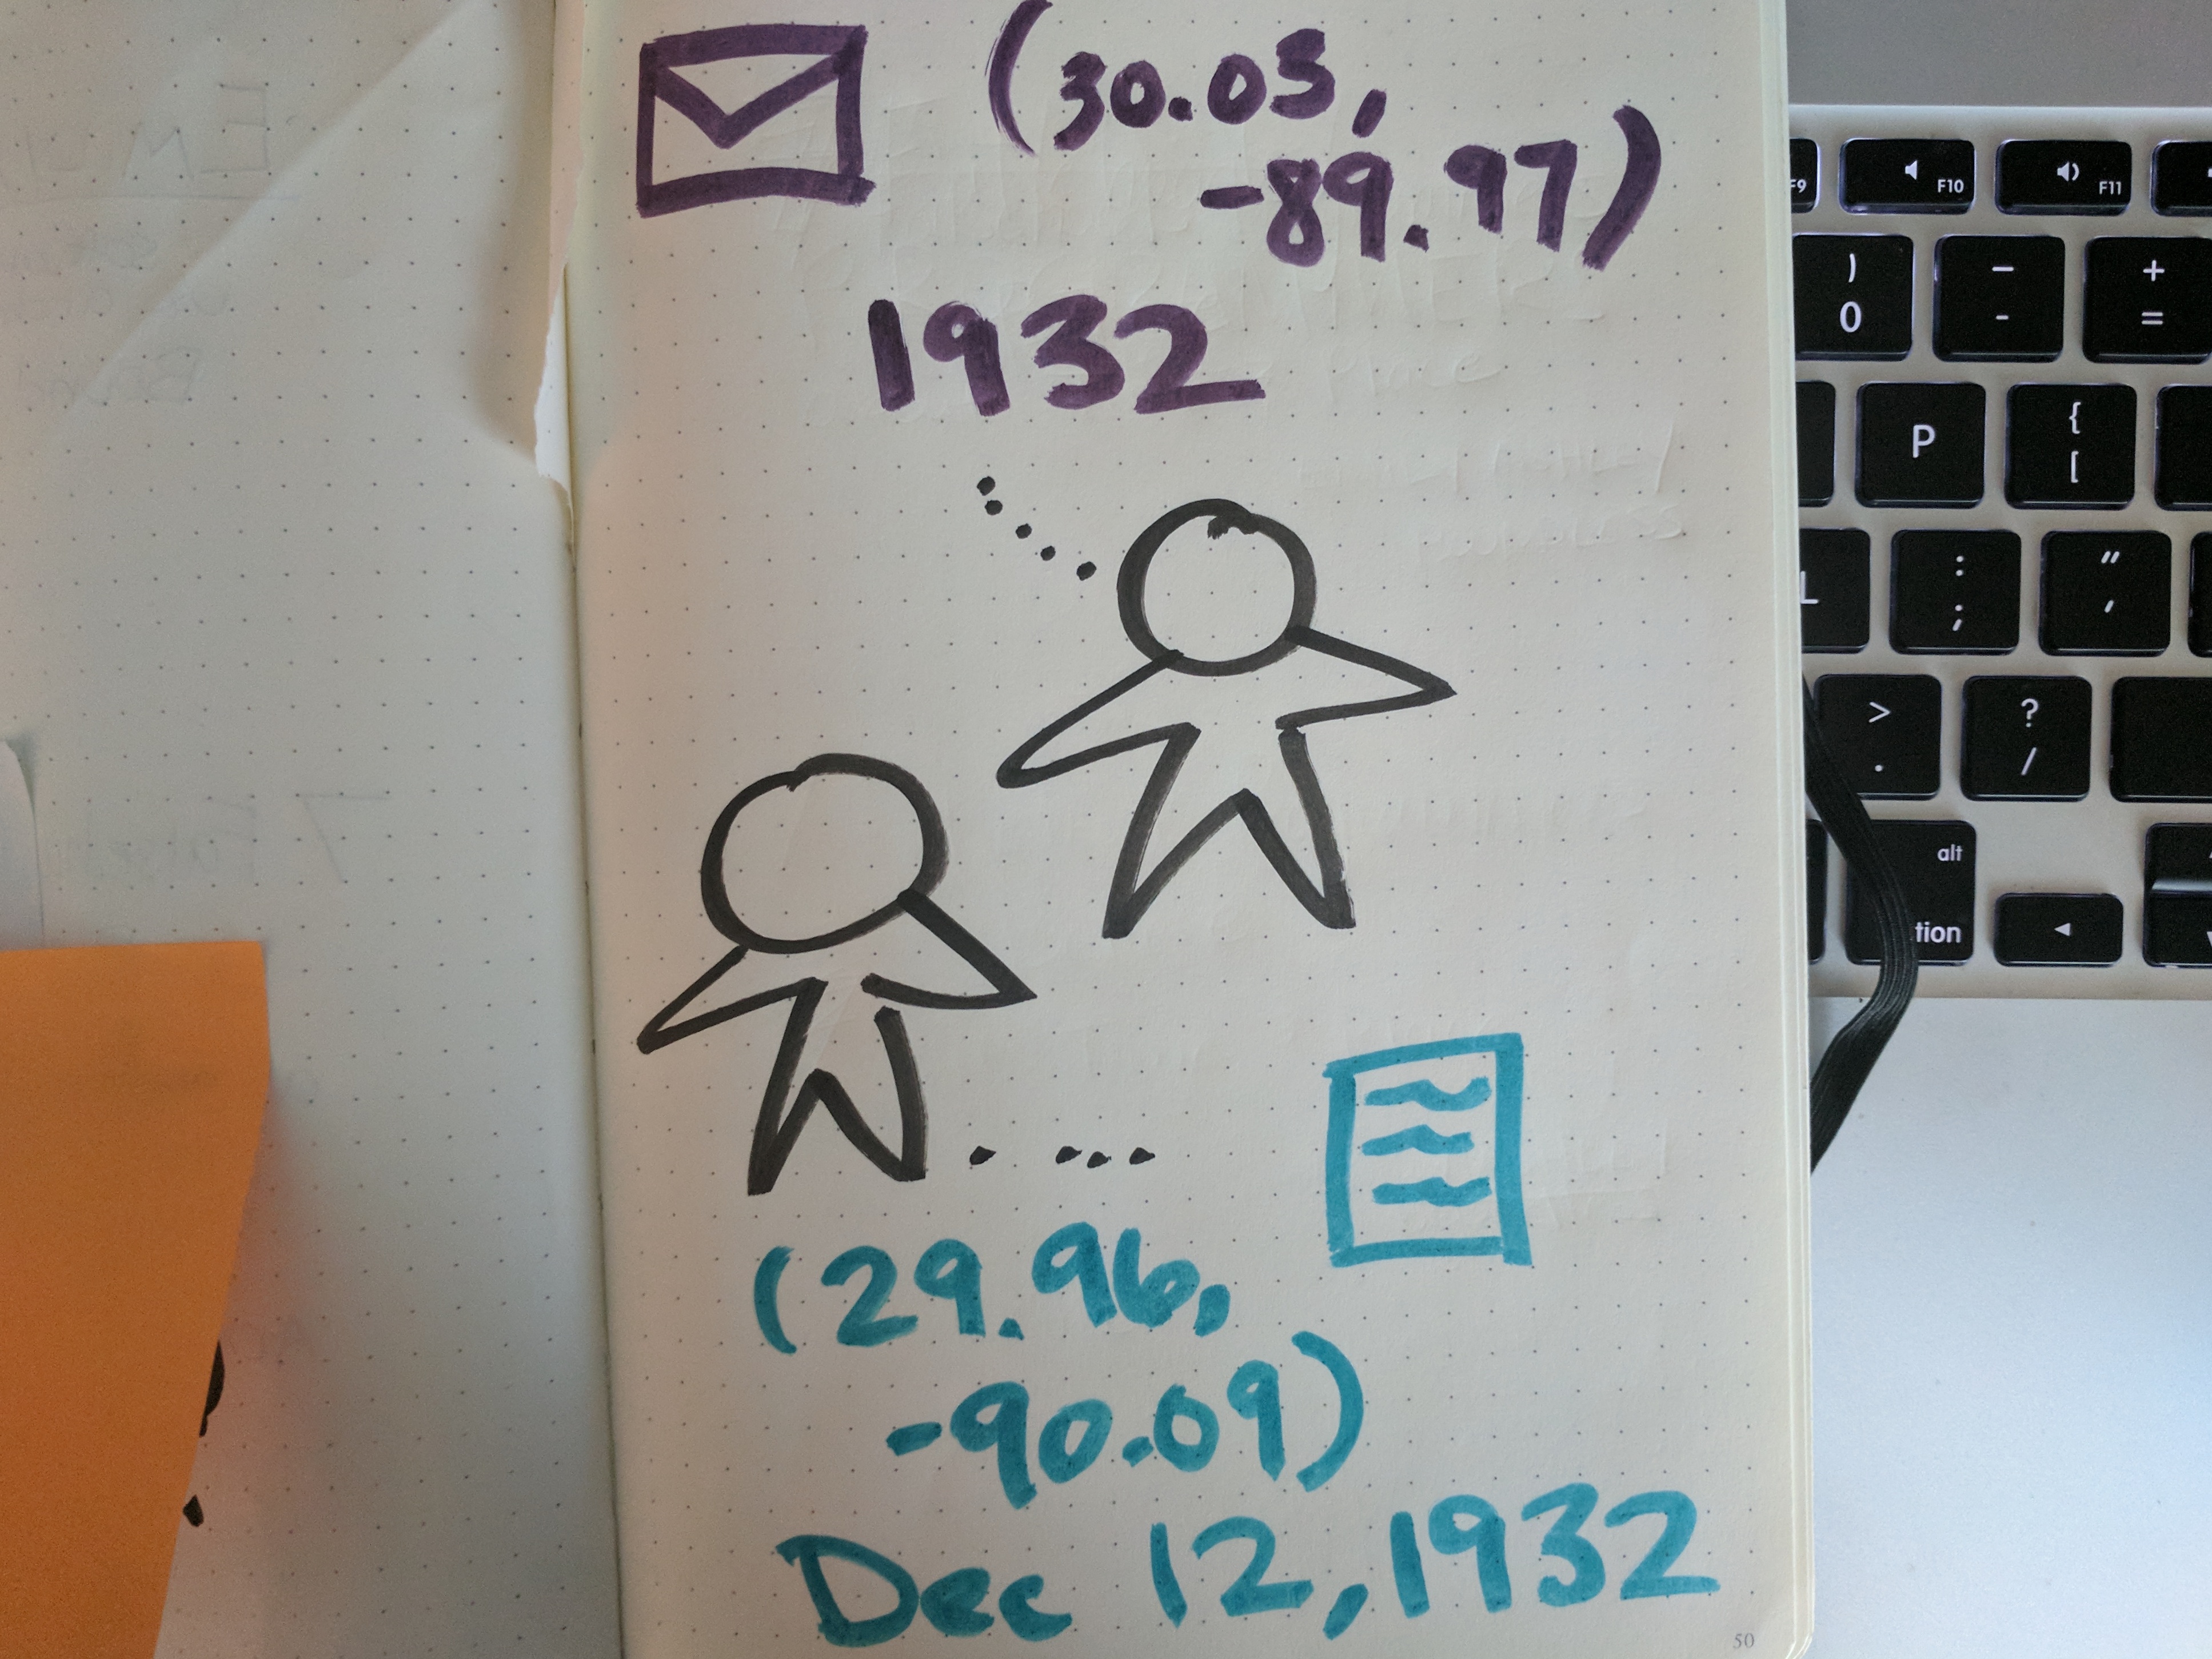 (30.03,
-89.97)
1932
(29.96,
-90.09)
Dec 12, 1932
50
F9
F10
F11
)
0
-
-
+
=
P
{
[
L
:
;
"
'
>
.
?
/
alt
tion
Place